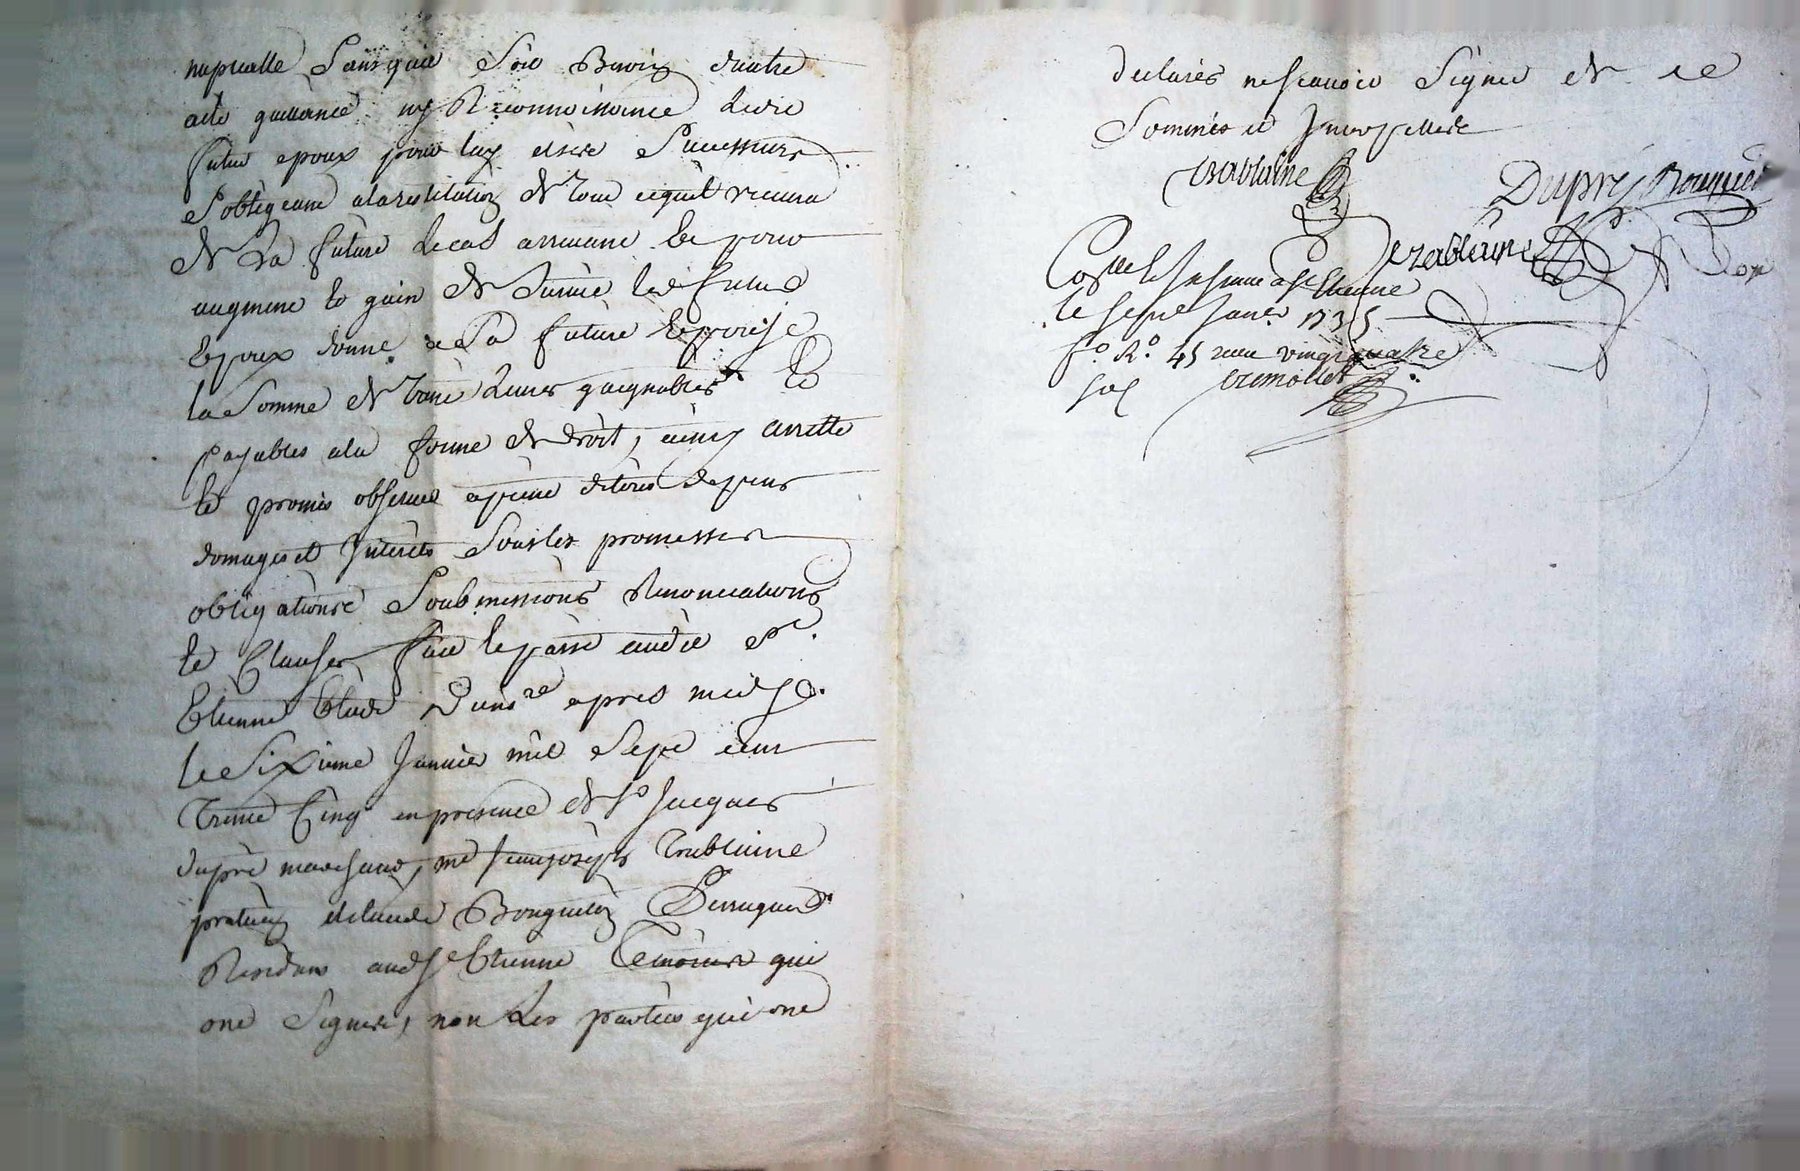 nuptialle Sans quil Soit Besoin dautre
acte quittance ny Reconnoissance Ledit
futur epoux pour luy et ses Successeurs
Sobligeant a la restitution de tout ce quil recevra
de La future Le cas arrivant Et pour
augment et gain de Survie Led futur
Epoux donne a La future Epouse
la Somme de Livres gaignables Et
payables a la forme de droit, ainsy arretté
Et promis observer a peine de tous depens
domages et Interets Sous les promesses
obligations Soubmissions Renonciations
Et Clauses fait Et passé audit St
Etienne Etude du nre apres midy
Le Sixieme Janvier mil Sept cent
Trente Cinq en presence de Sr Jacques
dupré marchand, me Jean joseph Trablaine
praticien et claude Perruquier
Residans aud St Etienne Temoins qui
ont Signés, non Les parties qui ont
declarés ne Scavoir Signer de ce
Sommés et Interpellés
Trablaine
Dupré
Trablaine
Collé et Insinué a St Etienne
le sept Janer 1735
fo Ro 45 recu vingt quatre
sol